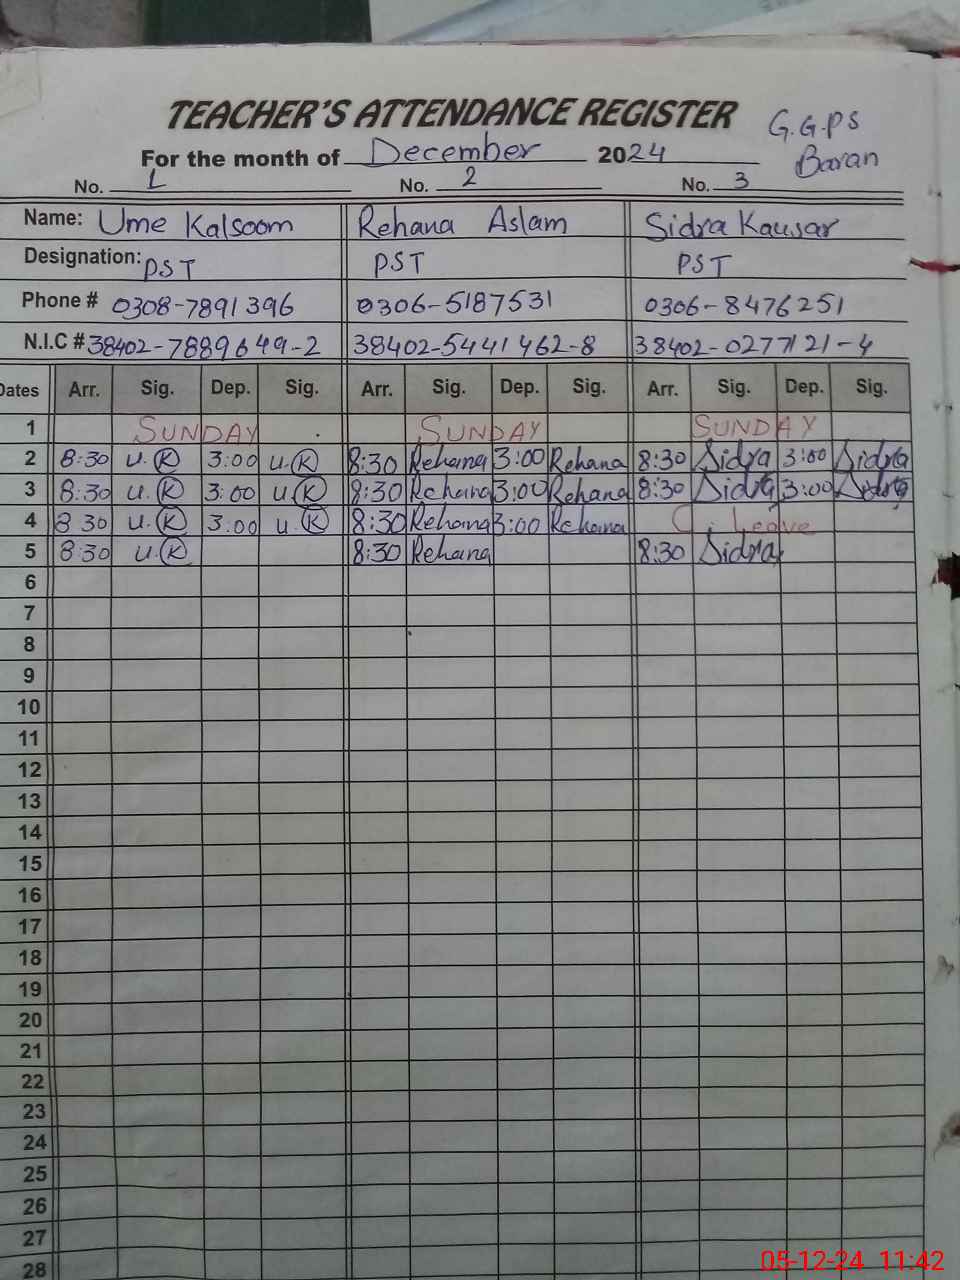 TEACHER'S ATTENDANCE REGISTER
G.G.PS
Baran
For the month of December 2024
No. 1 No. 2 No. 3
Name: Ume Kalsoom Rehana Aslam Sidra Kausar
Designation: PST PST PST
Phone # 0308-7891396 0306-5187531 0306-8476251
N.I.C # 38402-7889649-2 38402-5441462-8 38402-0277121-4
Dates Arr. Sig. Dep. Sig. Arr. Sig. Dep. Sig. Arr. Sig. Dep. Sig.
1 SUNDAY SUNDAY SUNDAY
2 8:30 U.K 3:00 U.K 8:30 Rehana 3:00 Rehana 8:30 Sidra 3:00 Sidra
3 8:30 U.K 3:00 U.K 8:30 Rehana 3:00 Rehana 8:30 Sidra 3:00 Sidra
4 8 30 U.K 3:00 U.K 8:30 Rehana 3:00 Rehana C. Leave
5 8:30 U.K 8:30 Rehana 8:30 Sidra
6
7
8
9
10
11
12
13
14
15
16
17
18
19
20
21
22
23
24
25
26
27
28
05-12-24 11:42